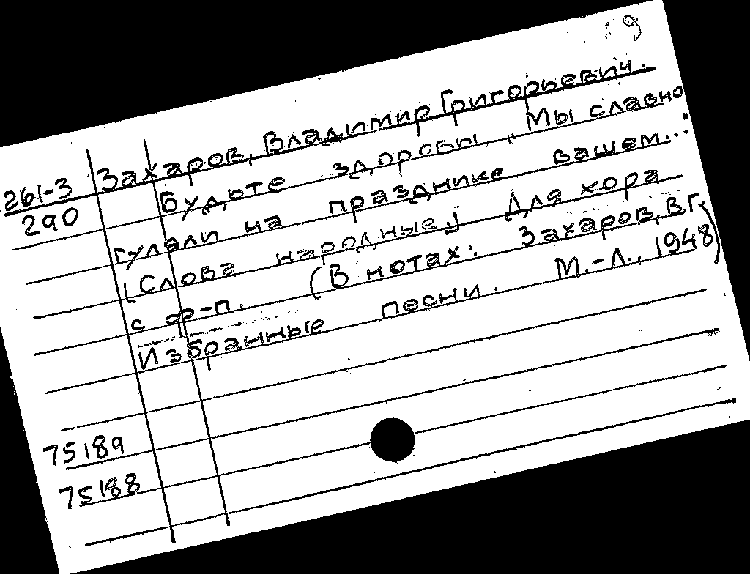 9
261-3
290
Захаров, Владимир Григорьевич.
Будьте здоровы. „Мы славно
гуляли на празднике вашем...“
[Слова народные.] Для хора
с ф-п. (В нотах: Захаров, В.Г.
Избранные песни. М.-Л., 1948)
75189
75188